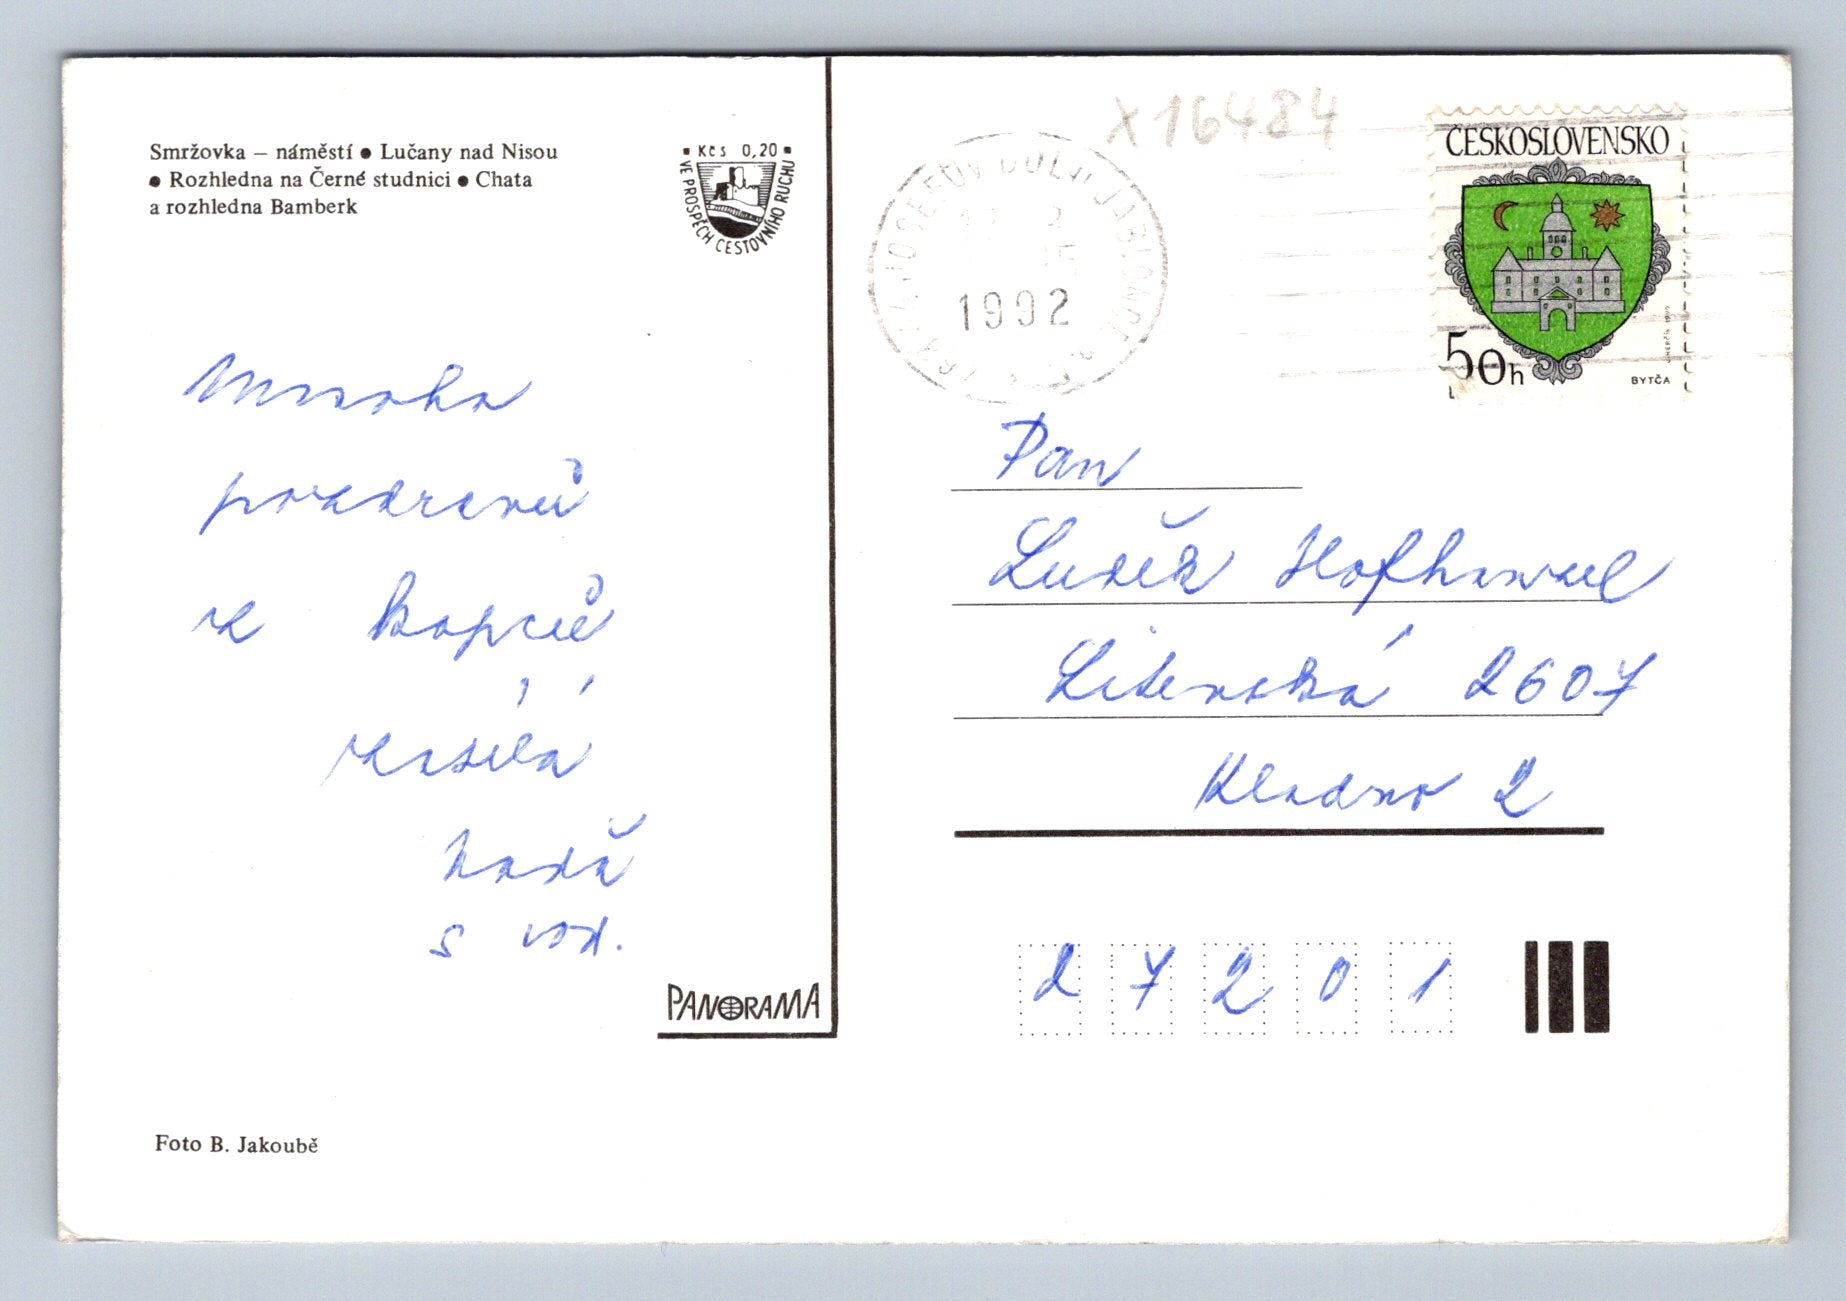 Smržovka – náměstí ● Lučany nad Nisou
● Rozhledna na Černé studnici ● Chata
a rozhledna Bamberk
Kčs 0,20
VE PROSPĚCH CESTOVNÍHO RUCHU
Mnoho
pozdravů
z kopců
zasílá
Naďa
s rod.
PANORAMA
Foto B. Jakoubě
X16484
1992
ČESKOSLOVENSKO
50h
BYTČA
Pan
Luděk
Litevská 2607
Kladno 2
27201